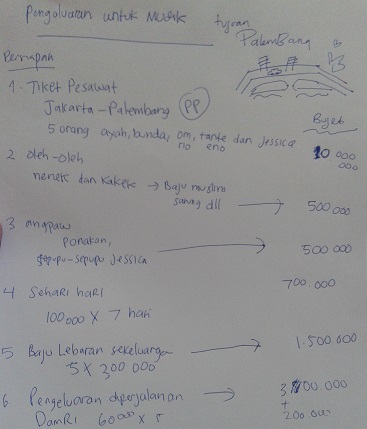 Pengeluaran untuk Mudik tujuan
Palembang
Persiapan
1. Tiket Pesawat
Jakarta - Palembang PP
Budget
5 orang ayah, bunda, om, tante dan Jessica
rio eno
10 000 000
2 oleh-oleh
nenek dan kakek → Baju muslim
sarung dll → 500 000
3 angpaw
ponakan, → 500 000
sepupu-sepupu Jessica
700.000
4 Sehari hari
100 000 X 7 hari
5 Baju Lebaran sekeluarga → 1.500.000
5 X 300 000
6 Pengeluaran diperjalanan → 300.000
+
DamRi 60 000 x 5 200 000